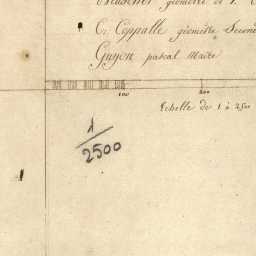 géomètre de 1.
C. Coppalle géomètre Second
Guyon pascal Maire
100 200
Echelle de 1 à 2500
1/2500